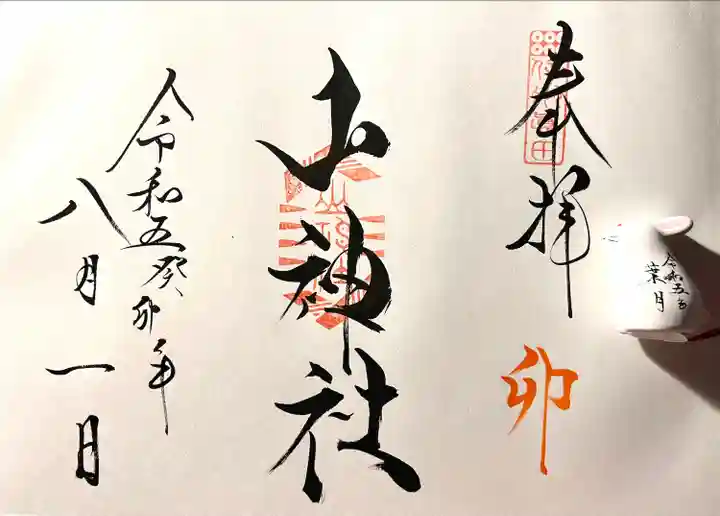 奉拝
卯
山神社
令和五癸卯年
八月一日
令和五年
葉月